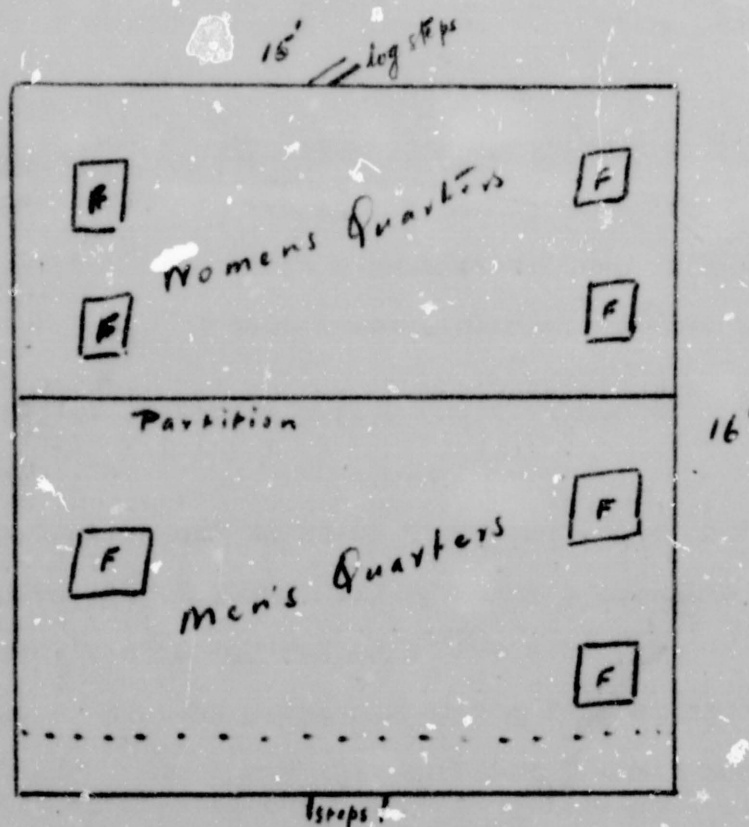 15' log steps
F F
Womens Quarters
F F
Partition
16'
F F
Men's Quarters
F
steps